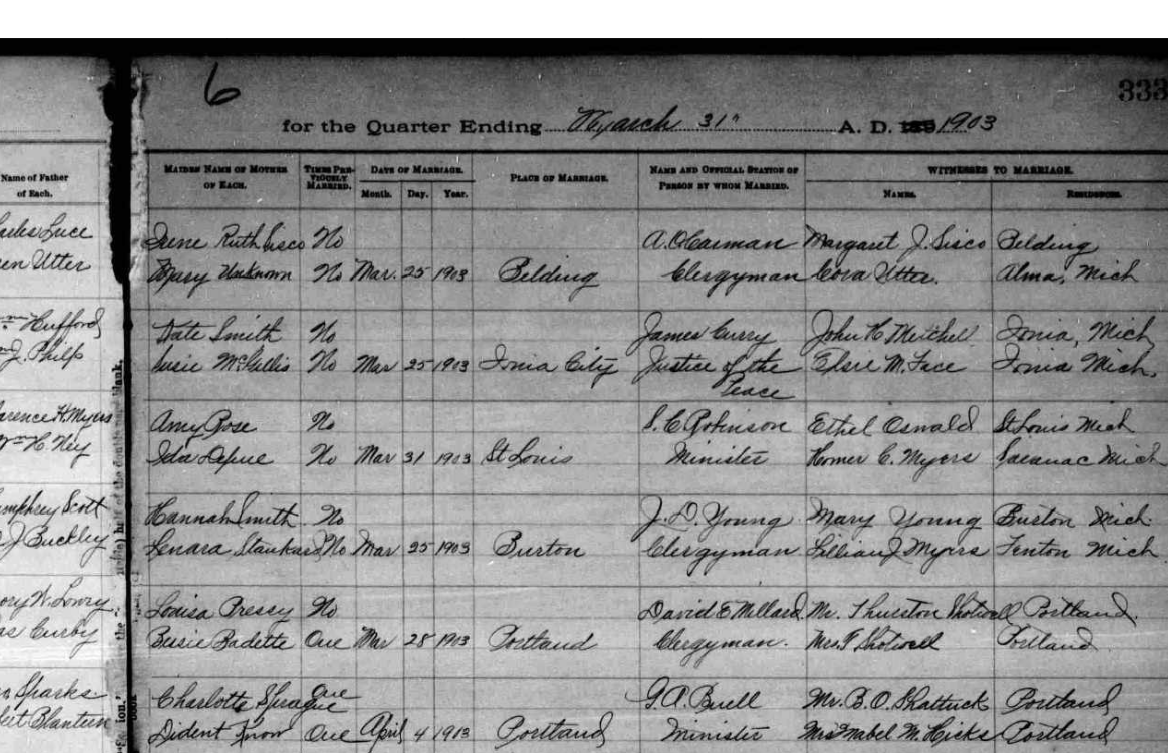 6
333
for the Quarter Ending March 31" A. D. 1903
Name of Father of Each.
MAIDEN NAME OF MOTHER OF EACH.
TIMES PREVIOUSLY MARRIED.
DATE OF MARRIAGE.
Month. Day. Year.
PLACE OF MARRIAGE.
NAME AND OFFICIAL STATION OF PERSON BY WHOM MARRIED.
WITNESSES TO MARRIAGE.
NAMES. RESIDENCES.
Luce Irene Ruth Sisco No Margaret J. Sisco Belding
Utter Mary Unknown No Mar. 25 1903 Belding Clergyman Cora Utter. Alma, Mich
Hufford Kate Smith No James Curry John H Mitchell Ionia, Mich
J. Philp Susie McGillis No Mar 25 1903 Ionia City Justice of the Elsie M. Face Ionia Mich.
Peace
H. Myers Amy Rose No S. C. Robinson Ethel Oswald St Louis Mich
H. Ney Ida Depue No Mar 31 1903 St Louis Minister Homer C. Myers Saranac Mich
Scott Hannah Smith No J. D. Young Mary Young Burton Mich
J Buckley Lenara No Mar 25 1903 Burton Clergyman Lillian J Myers Fenton Mich
W. Lowry Louisa Pressy No David E Millard. Mr. Thurston Shotwell Portland.
Curby Badette One Mar 28 1903 Portland Clergyman. Mrs. T Shotwell Portland
Sparks Charlotte Sprague One G. A. Buell Mr. B. O. Shattuck Portland
Dident Know One April 4 1903 Portland Minister Mrs Mabel M. Hicks Portland